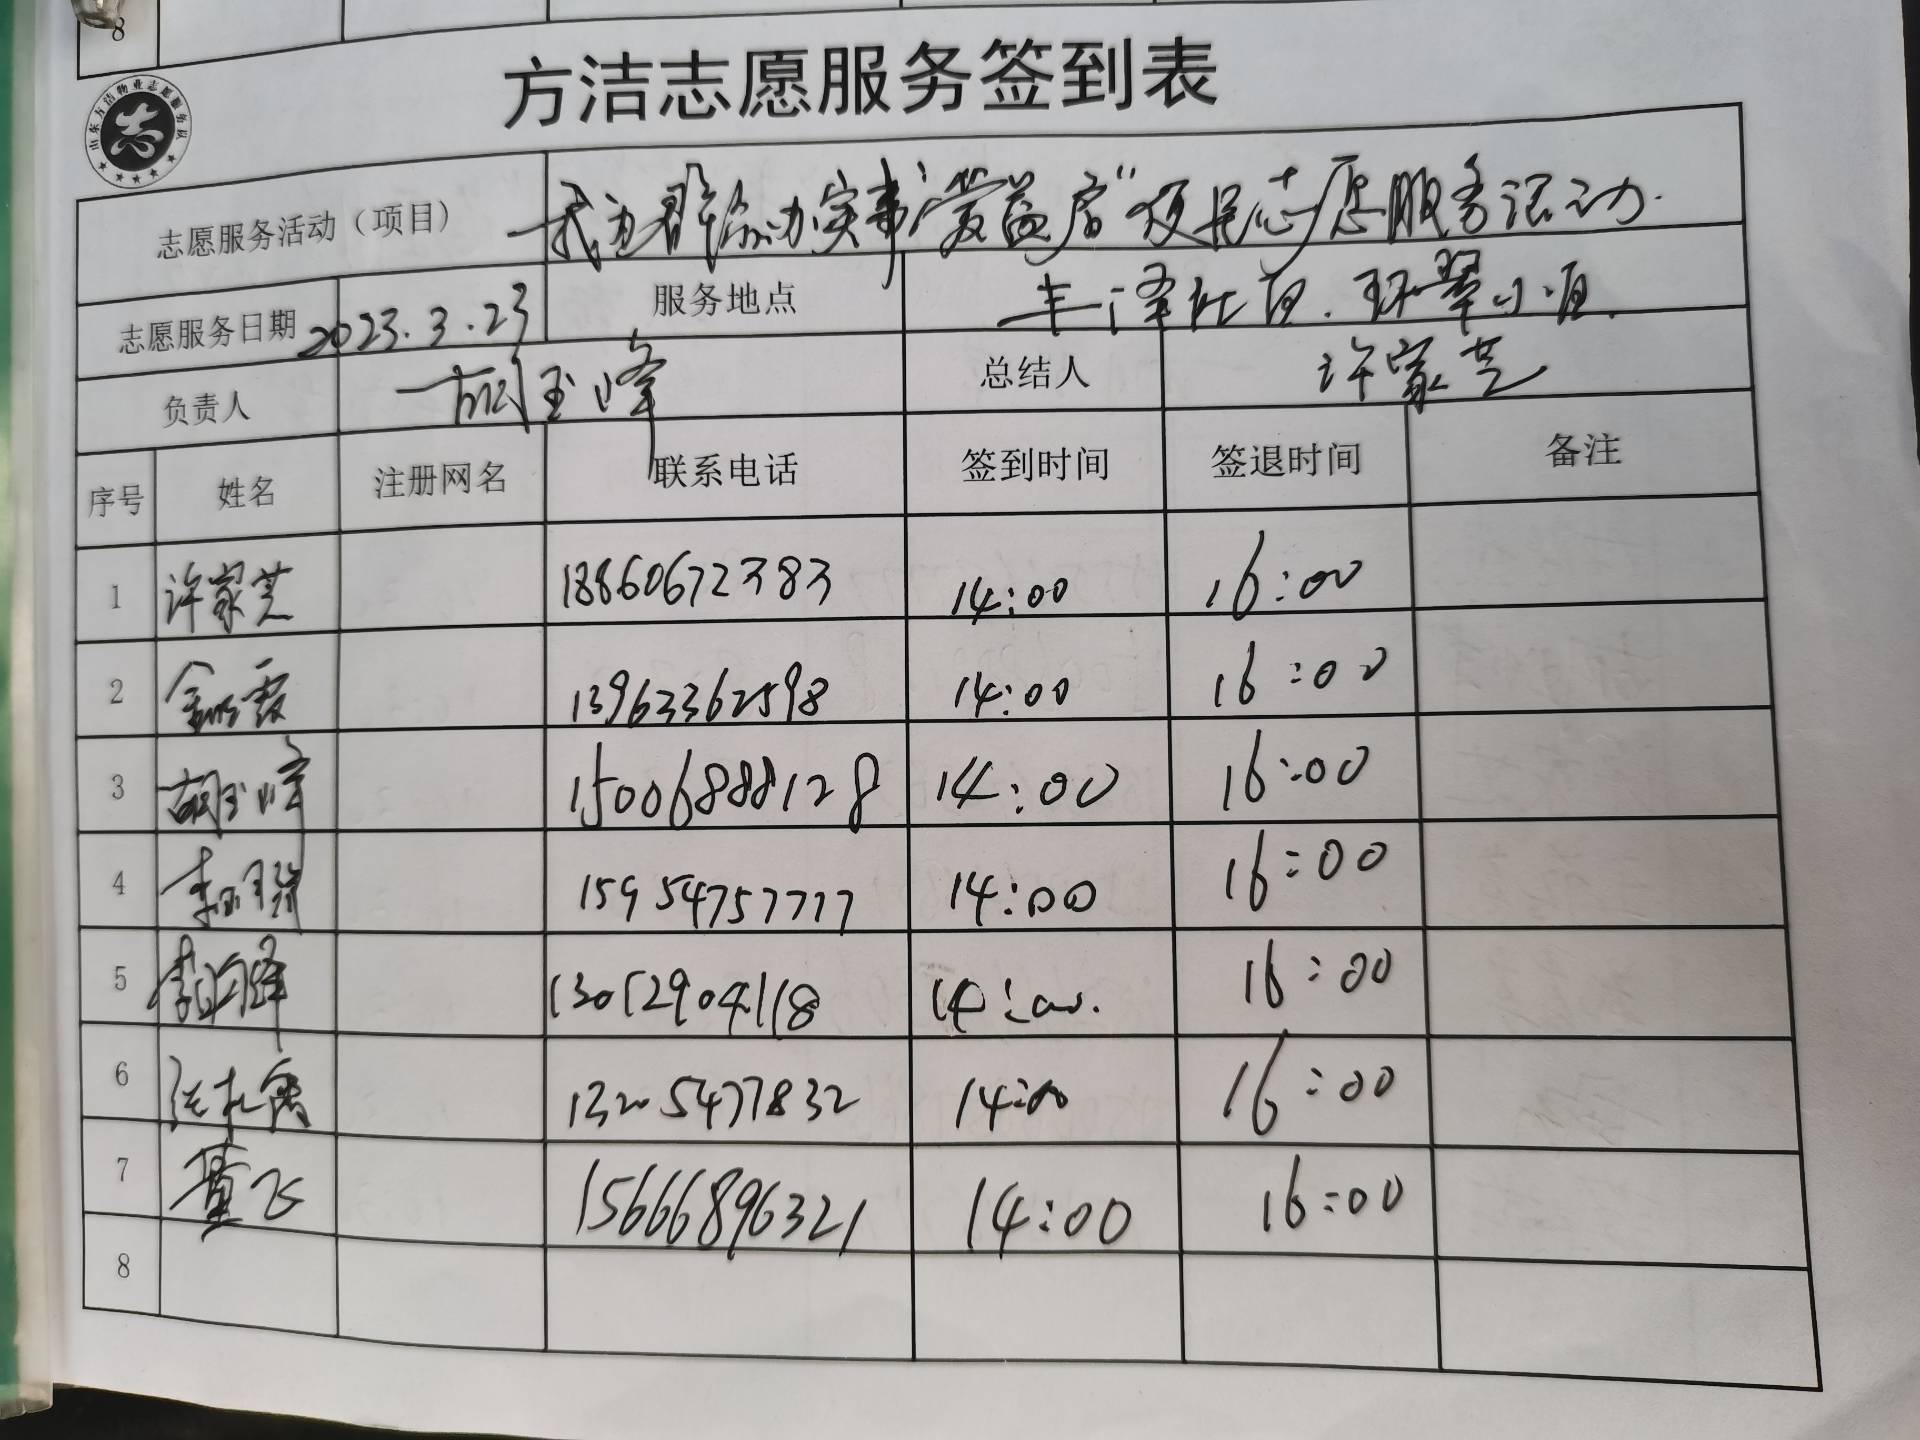 8
方洁志愿服务签到表
山东方洁物业志愿服务队
志
志愿服务活动（项目） 我为群众办实事"爱益启"便民志愿服务活动.
志愿服务日期 2023.3.23 服务地点 丰泽社区.环翠小区.
负责人 胡玉峰 总结人 许家芝
序号 姓名 注册网名 联系电话 签到时间 签退时间 备注
1 许家芝 18860672383 14:00 16:00
2 13963362598 14:00 16:00
3 胡玉峰 15006888128 14:00 16:00
4 15954757777 14:00 16:00
5 13012904118 14:00. 16:00
6 13205477832 14:00 16:00
7 董飞 15666896321 14:00 16:00
8